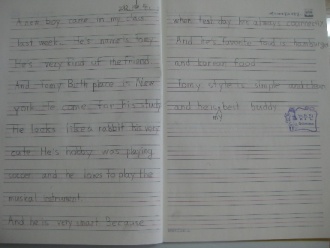 A new boy came in my class
last week. He's name is Tomy
he's very kind of the friend.
And tomy Birth place is New
york. He came for his study
He looks likes rabbit his very
cute. He's hobby was playing
soccer and he loves to play the
musical
And he is very smart Because
when test day his always
And he's favorite food is hamburger
and korean food
Tomy style is simple and clean
and being best buddy
my